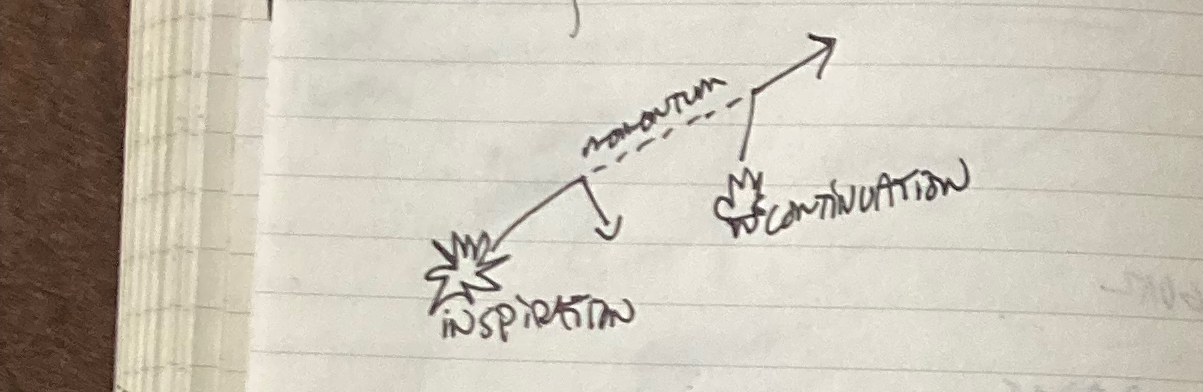 MOMENTUM
CONTINUATION
INSPIRATION